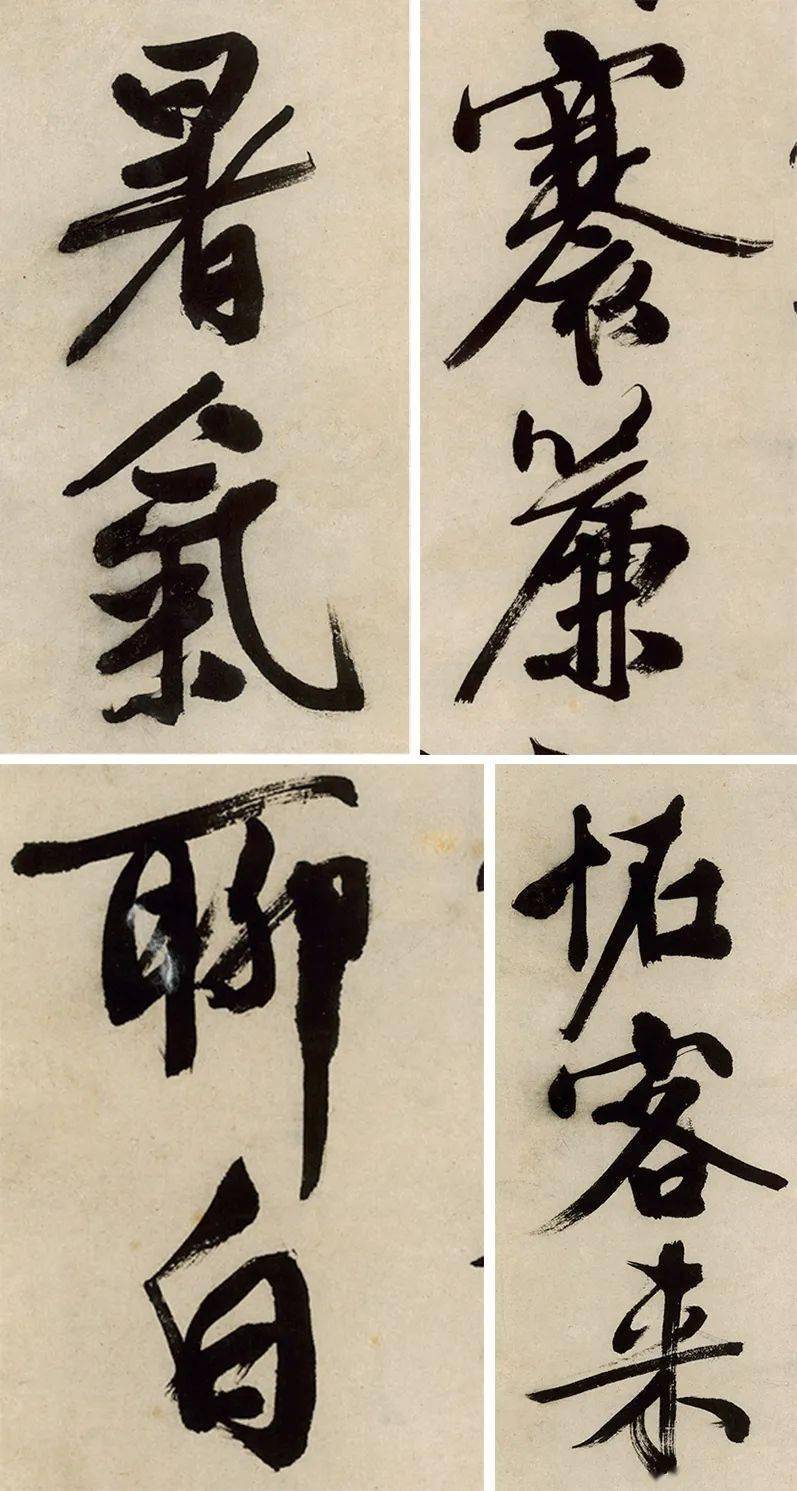 暑氣
褰簾
聊自
客来